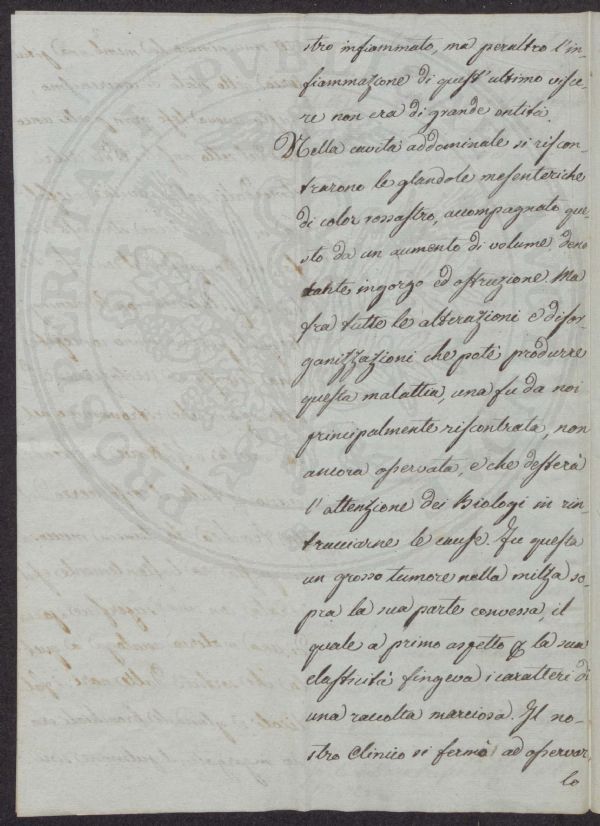 stro infiammato, ma peraltro l'in-
fiammazione di quest'ultimo visce-
re non era di grande entità.
Nella cavità addominale si riscon-
trarono le glandole mesenteriche
di color rossastro, accompagnato que-
sto da un aumento di volume, deno-
tante ingorgo ed ostruzione. Ma
fra tutte le alterazioni e disor-
ganizzazioni che potè produrre
questa malattia, una fu da noi
principalmente riscontrata, non
ancora osservata, e che desterà
l'attenzione dei Biologi in rin-
tracciarne le cause. Fu questa
un grosso tumore nella milza so-
pra la sua parte convessa, il
quale a primo aspetto p la sua
elasticità fingeva i caratteri di
una raccolta marciosa. Il no-
stro Clinico si fermò ad osservar-
lo